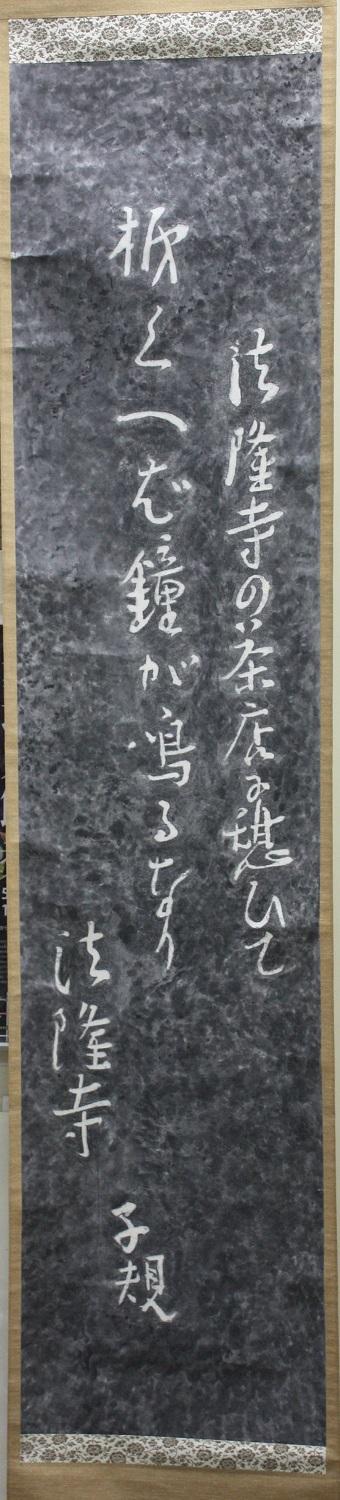 法隆寺の茶店に憩ひて
柿くへば鐘が鳴るなり
法隆寺
子規